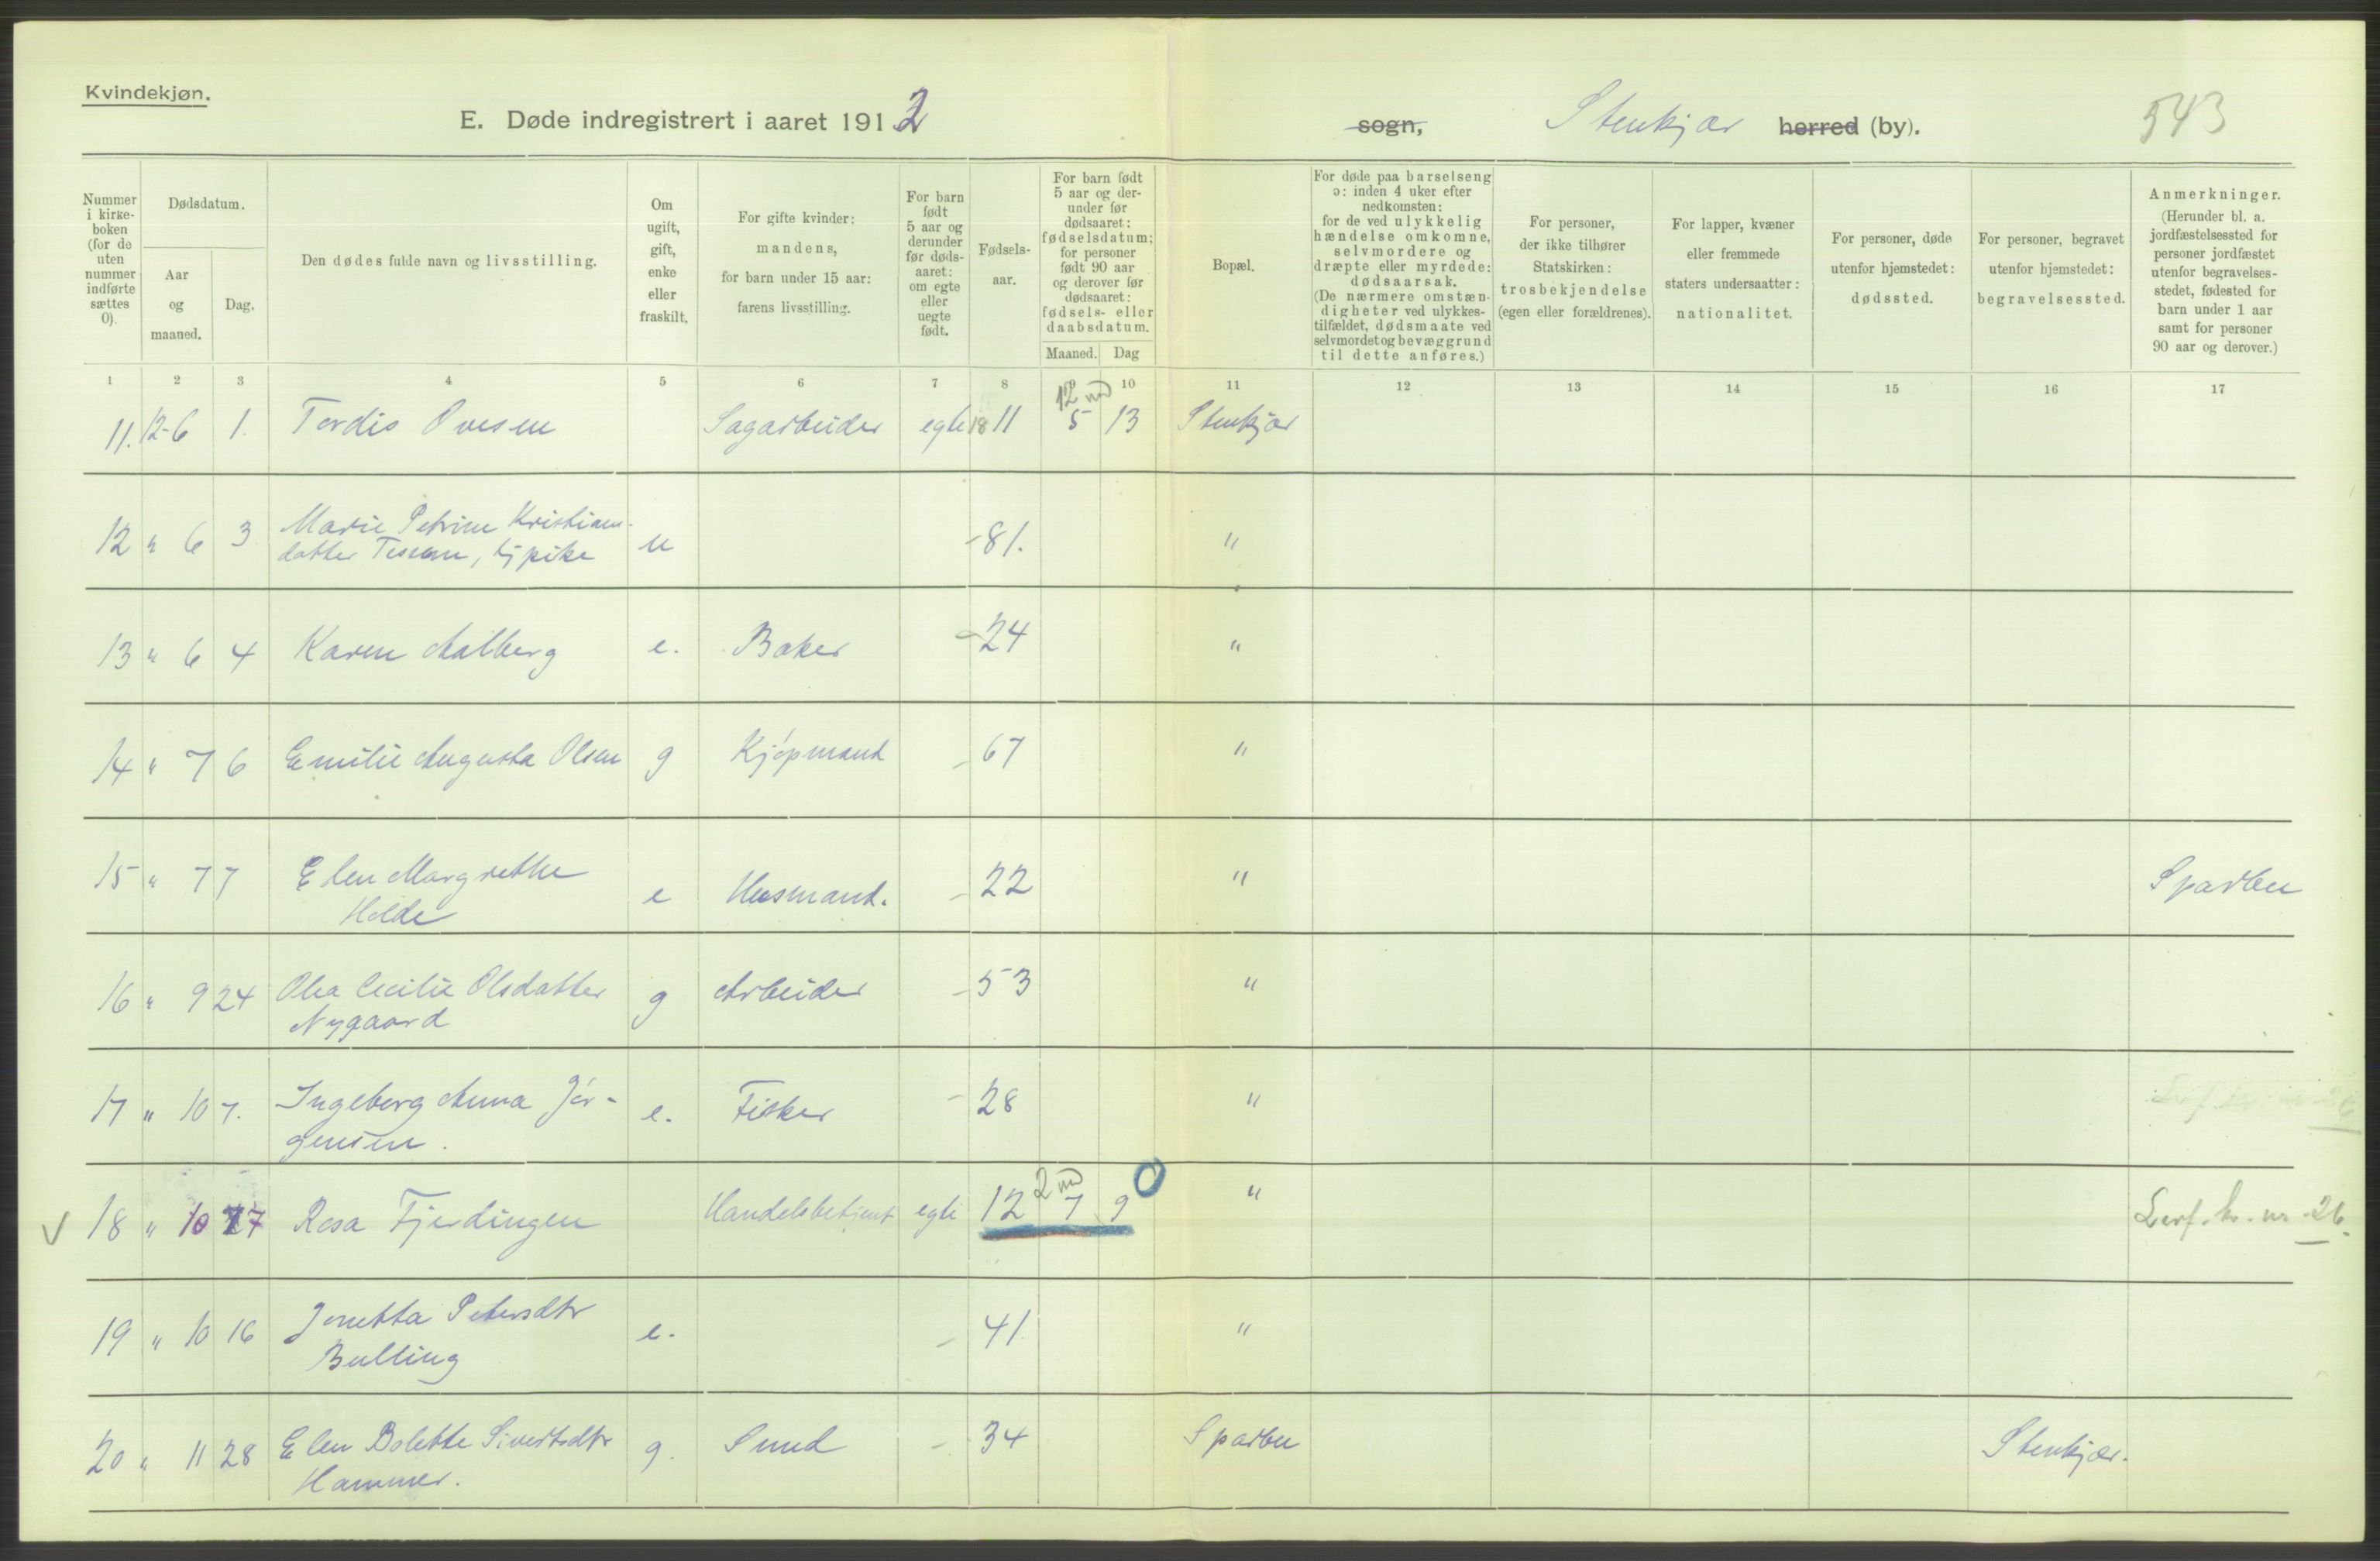 Kvindekjøn.
E. Døde indregistrert i aaret 1912
sogn, Stenkjær herred (by).
543
Nummer i kirke-boken (for de uten nummer indførte sættes 0).
Dødsdatum.
Aar og maaned.
Dag.
Den dødes fulde navn og livsstilling.
Om ugift, gift, enke eller fraskilt.
For gifte kvinder: mandens, for barn under 15 aar: farens livsstilling.
For barn født 5 aar og derunder før døds-aaret: om egte eller uegte født.
Fødsels-aar.
For barn født 5 aar og der-under før dødsaaret: fødselsdatum; for personer født 90 aar og derover før dødsaaret: fødsels- eller daabsdatum.
Maaned. Dag
Bopæl.
For døde paa barselseng ɔ: inden 4 uker efter nedkomsten: for de ved ulykkelig hændelse omkomne, selvmordere og dræpte eller myrdede: dødsaarsak. (De nærmere omstæn-digheter ved ulykkes-tilfældet, dødsmaate ved selvmordet og bevæggrund til dette anføres.)
For personer, der ikke tilhører Statskirken: trosbekjendelse (egen eller forældrenes).
For lapper, kvæner eller fremmede staters undersaatter: nationalitet.
For personer, døde utenfor hjemstedet: dødssted.
For personer, begravet utenfor hjemstedet: begravelsessted.
Anmerkninger. (Herunder bl. a. jordfæstelsessted for personer jordfæstet utenfor begravelses-stedet, fødested for barn under 1 aar samt for personer 90 aar og derover.)
1 2 3 4 5 6 7 8 9 10 11 12 13 14 15 16 17
12 md
11. 12-6 1. Tordis Ovesen Sagarbeider egte 1811 5 13 Stenkjær
12 " 6 3 Marie Petrine Kristian-
datter Tessem, tj pike u -81. "
13 " 6 4 Karen Aalberg e. Baker -24 "
14 " 7 6 Emilie Augusta Olsen g Kjøpmand -67 "
15 " 7 7 Elen Margrethe
Holde e Husmand. -22 " Sparbu
16 " 9 24 Olea Cecilie Olsdatter
Nygaard g Arbeider -53 "
17 " 10 7. Ingeborg Anna Jør-
gensen. e. Fisker -28 "
2 md 0
18 " 10 17 Rosa Fjerdingen Handelsbetjent egte 12 7 9 " nr. 26.
19 " 10 16 Jonetta Petersdtr
Bulling e. -41 "
20 " 11 28 Elen Bolette Sivertsdtr
Hammer. g. Smed -34 Sparbu Stenkjær.